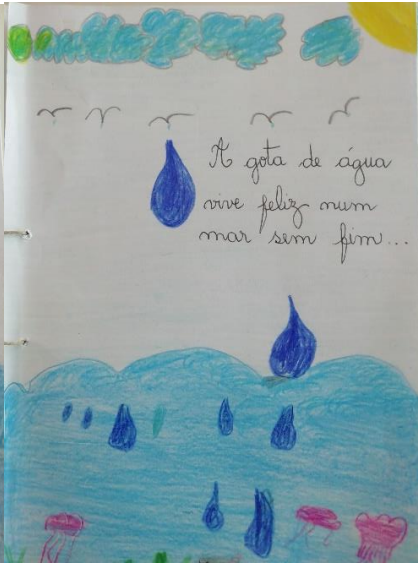 A gota de água
vive feliz num
mar sem fim...